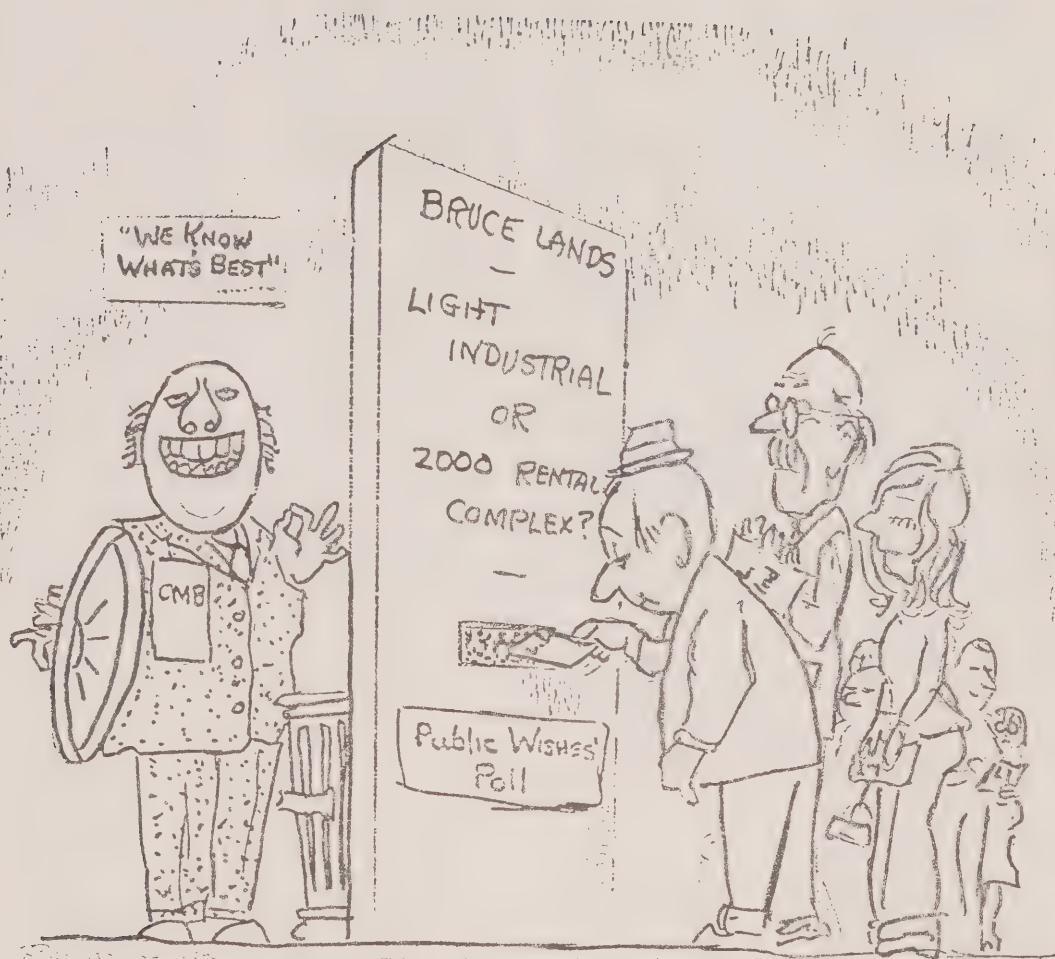 "WE KNOW
WHAT'S BEST"
BRUCE LANDS
—
LIGHT
INDUSTRIAL
OR
2000 RENTAL
COMPLEX?
—
CMB
Public WISHES'
Poll